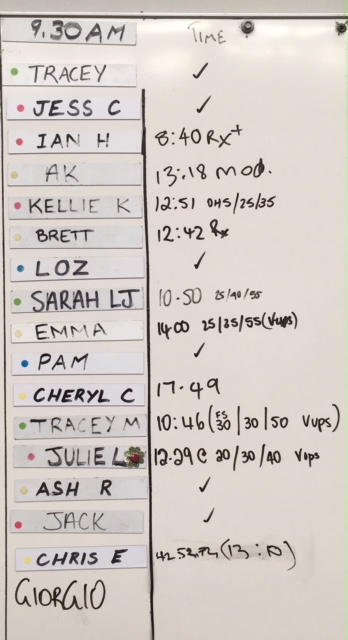 9.30AM TIME
TRACEY ✓
JESS C ✓
IAN H 8:40 Rx+
AK 13:18 mod.
KELLIE K 12:51 OHS/25/35
BRETT 12:42 Rx
LOZ ✓
SARAH LJ 10-50 25/40/55
EMMA 1400 25/35/55(Vups)
PAM ✓
CHERYL C 17-49
TRACEY M 10:46(FS 30|30|50 Vups)
JULIE L 12.29 C 20/30/40 Vups
ASH R ✓
JACK ✓
CHRIS E
GIORGIO